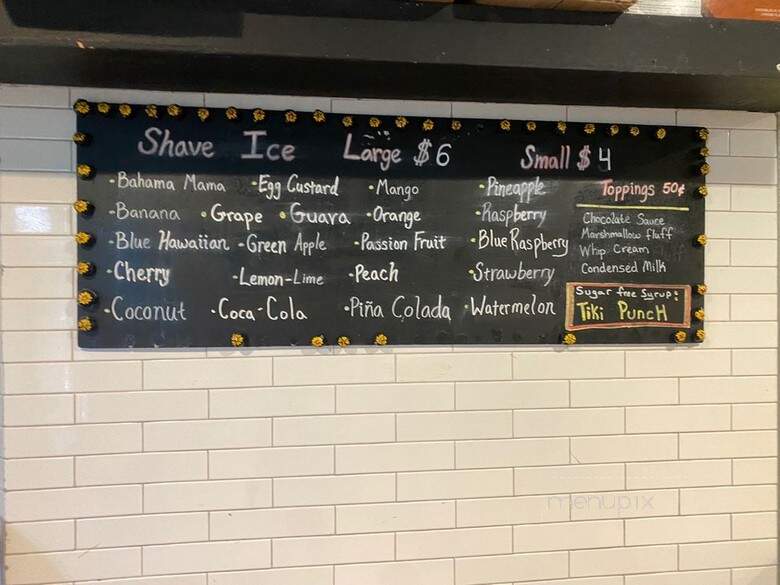 Shave Ice Large $6 Small $4
•Bahama Mama •Egg Custard •Mango •Pineapple
•Banana •Grape •Guava •Orange •Raspberry
•Blue Hawaiian •Green Apple •Passion Fruit •Blue Raspberry
•Cherry •Lemon-Lime •Peach •Strawberry
•Coconut •Coca-Cola •Piña Colada •Watermelon
Toppings 50¢
Chocolate Sauce
Marshmallow fluff
Whip Cream
Condensed Milk
Sugar free Syrup:
Tiki Punch
menupix